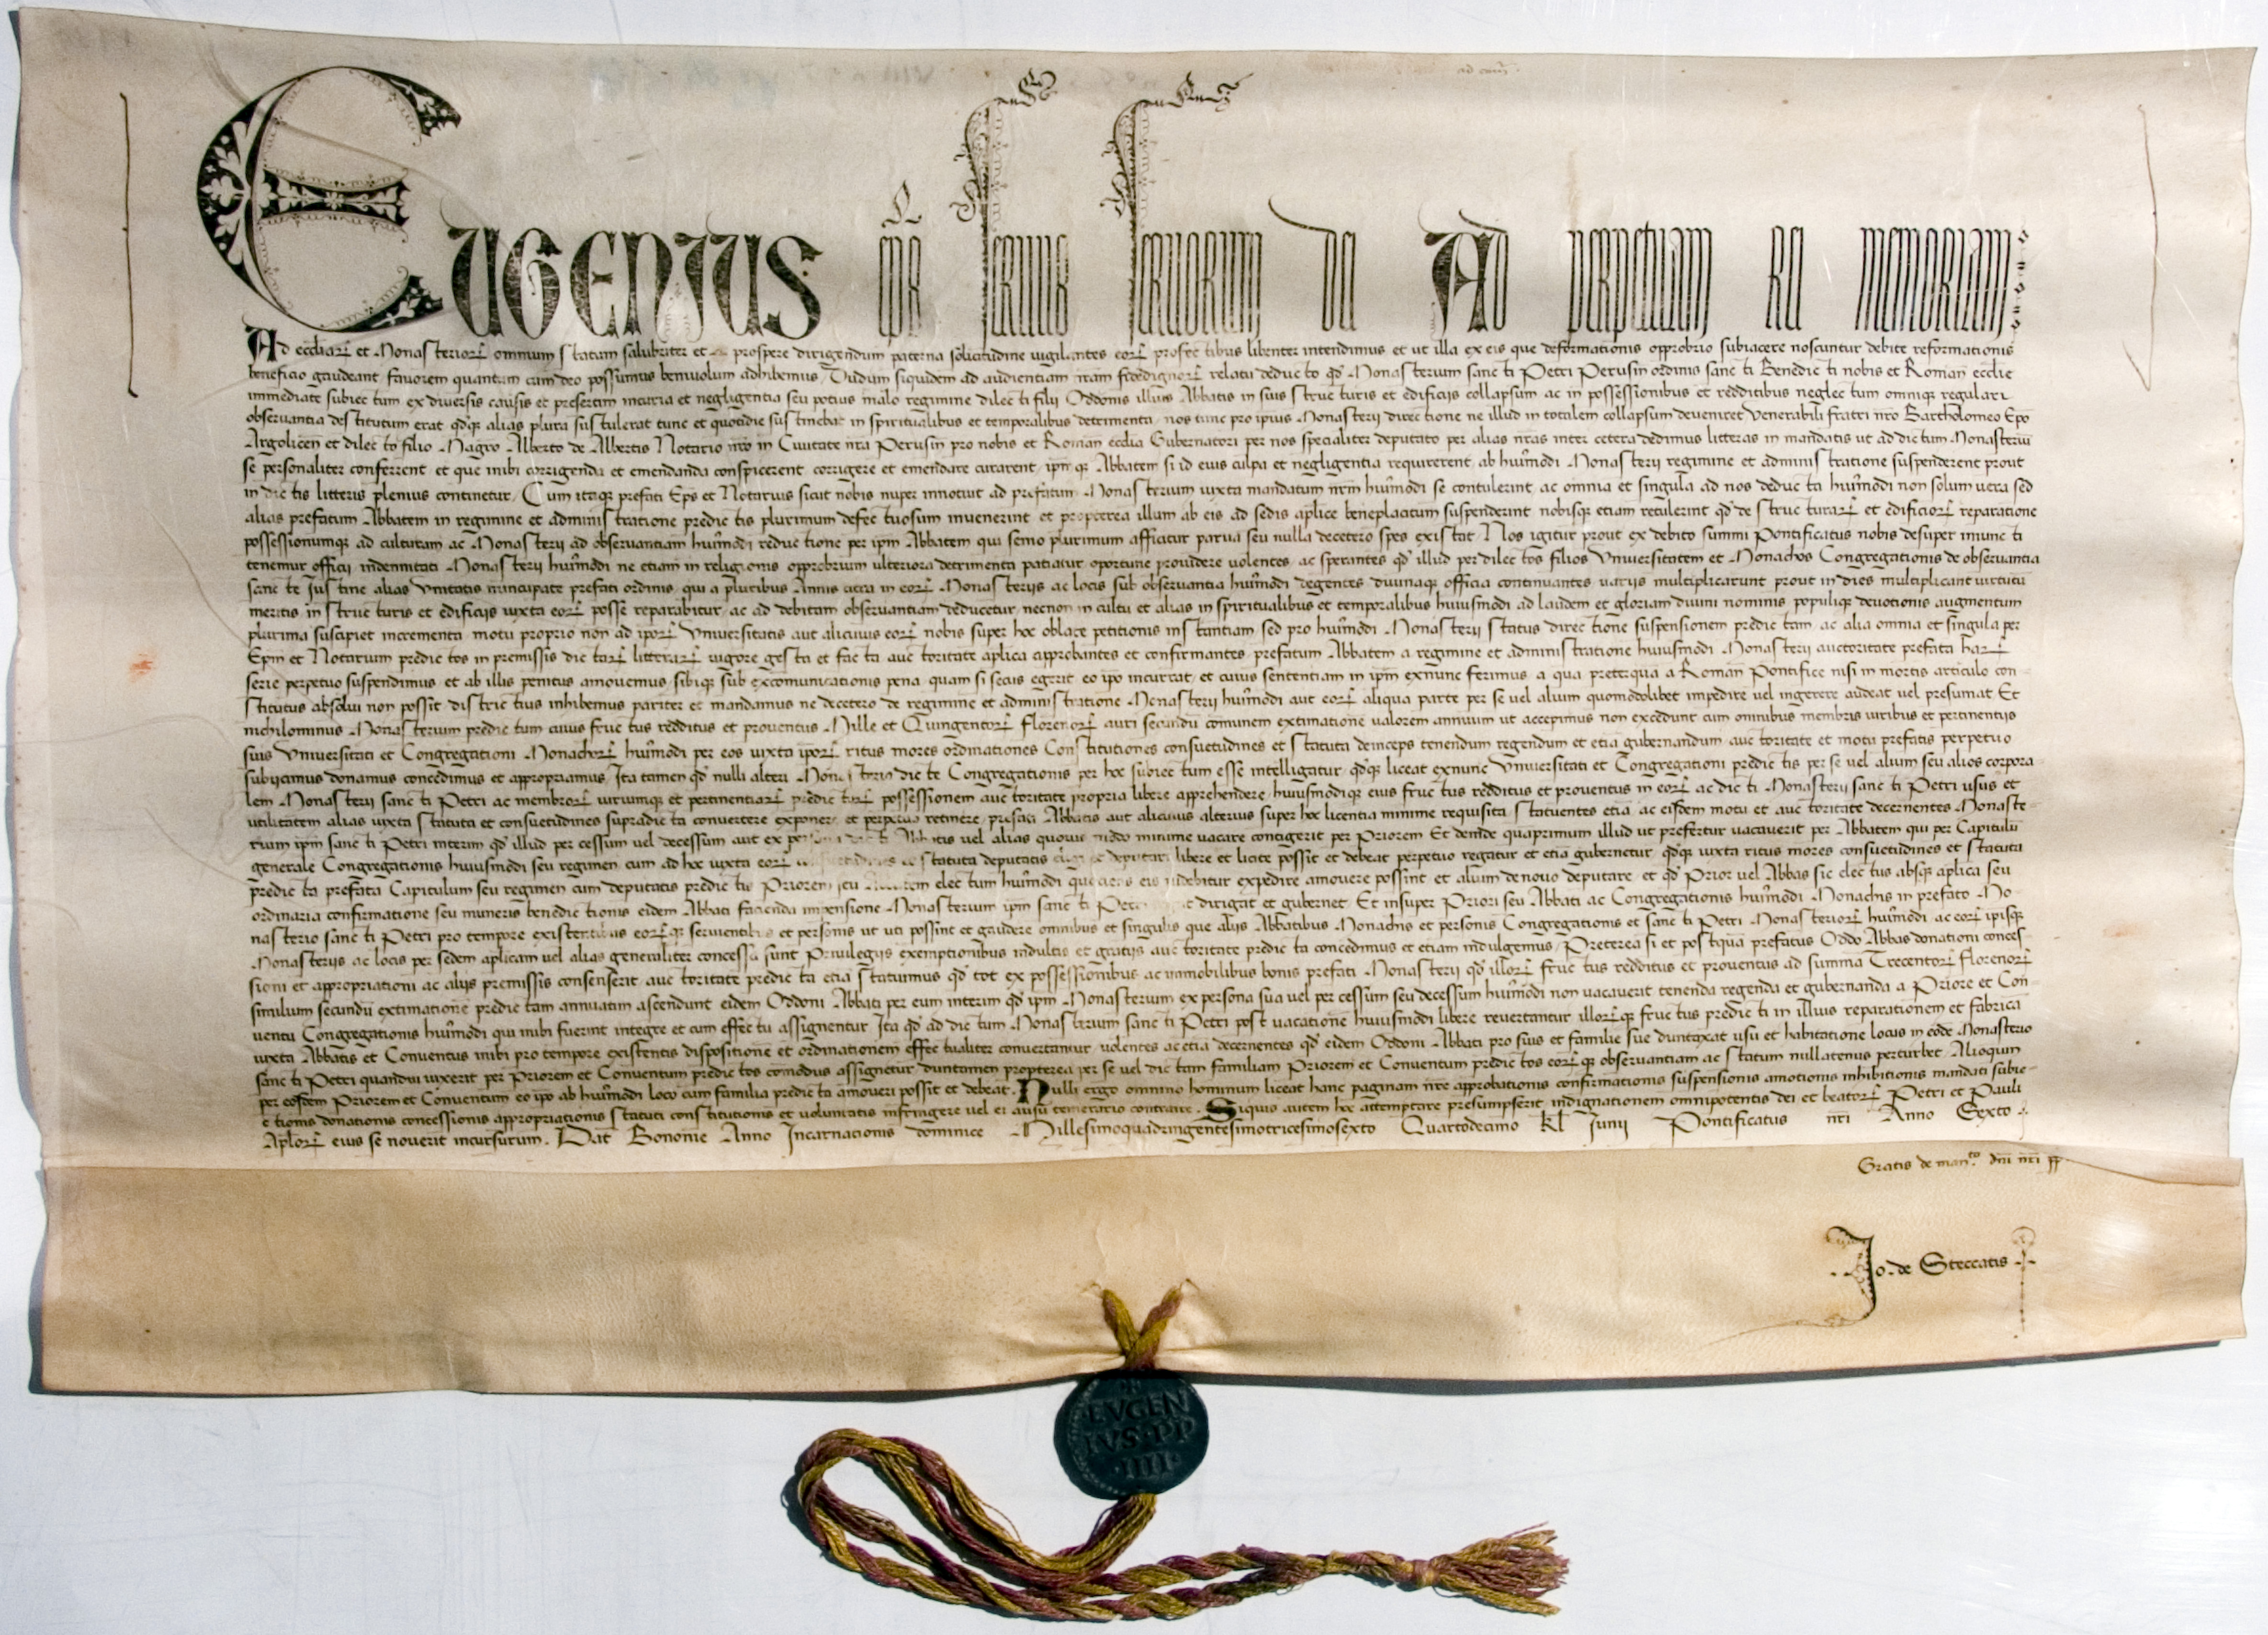 Eugenius ep̄s seruus seruorum dei Ad perpetuam rei memoriam
Ad eccl̄iaꝝ et Monasterioꝝ omnium statum salubriter et prospere dirigendum paterna solicitudine uigilantes eoꝝ profectibus libenter intendimus et ut illa ex eis que deformationis opprobrio subiacere noscuntur debite reformationis
beneficio gaudeant fauorem quantum cum deo possumus beniuolum adhibemus Dudum siquidem ad audientiam nr̄am fidedignoꝝ relatu deducto qd̄ Monasterium sancti Petri Perusin̄ ordinis sancti Benedicti nobis et Roman̄ ecclie
immediate subiectum ex diuersis causis et presertim incuria et negligentia seu potius malo regimine dilecti filii Oddonis illius Abbatis in suis structuris et edificijs collapsum ac in possessionibus et redditibus neglectum omniqꝫ regulari
obseruantia destitutum erat qd̄qꝫ alias plura sustulerat tunc et quotidie sustinebat in spiritualibus et temporalibus detrimenta nos tunc pro ipius Monasterij directione ne illud in totalem collapsum deueniret Venerabili fratri nr̄o Bartholomeo Ep̄o
Argolicen̄ et dilecto filio Magro Alberto de Albertis Notario nr̄o in Ciuitate nr̄a Perusin̄ pro nobis et Roman̄ ecclia Gubernatori per nos specialiter deputato per alias nr̄as inter cetera dedimus litteras in mandatis ut ad dictum Monasteriū
se personaliter conferrent et que inibi corrigenda et emendanda conspicerent corrigere et emendare curarent ip̄m qꝫ Abbatem si id eius culpa et negligentia requirerent ab hui᷒modi Monasterij regimine et administratione suspenderent prout
in dictis litteris plenius continetur Cum itaqꝫ prefati Ep̄s et Notarius sicut nobis nuper innotuit ad prefatum Monasterium iuxta mandatum nr̄m hui᷒modi se contulerint ac omnia et singula ad nos deducta hui᷒modi non solum uera sed
alias prefatum Abbatem in regimine et administratione predictis plurimum defectuosum inuenerint et propterea illum ab eis ad sedis aplice beneplacitum suspenderint nobisqꝫ etiam retulerint qd̄ de structuraꝝ et edificioꝝ reparatione
possessionumqꝫ ad culturam ac Monasterij ad obseruantiam hui᷒modi reductione per ip̄m Abbatem qui senio plurimum afficitur parua seu nulla decetero spes existat Nos igitur prout ex debito summi Pontificatus nobis desuper iniuncti
tenemur officij indemnitati Monasterij hui᷒modi ne etiam in religionis opprobrium ulteriora detrimenta patiatur oportune prouidere uolentes ac sperantes qd̄ illud per dilectos filios Vniuersitatem et Monachos Congregationis de obseruantia
sancte Justine alias Vnitatis nuncupate prefati ordinis qui a pluribus Annis citra in eoꝝ Monasterijs ac locis sub obseruantia hui᷒modi degentes diuinaqꝫ officia continuantes uarijs multiplicarunt prout in dies multiplicant uirtutū
meritis in structuris et edificijs iuxta eoꝝ posse reparabitur ac ad debitam obseruantiam deducetur necnon in cultu et alias in spiritualibus et temporalibus huiusmodi ad laudem et gloriam diuini nominis populiqꝫ deuotionis augmentum
plurima suscipiet incrementa motu proprio non ad ipoꝝ Vniuersitatis aut alicuius eoꝝ nobis super hoc oblate petitionis instantiam sed pro hui᷒modi Monasterij status directione suspensionem predictam ac alia omnia et singula per
Ep̄m et Notarium predictos in premissis dictaꝝ litteraꝝ uigore gesta et facta auctoritate aplica approbantes et confirmantes prefatum Abbatem a regimine et administratione huiusmodi Monasterij auctoritate prefata haꝝ
serie perpetuo suspendimus et ab illis penitus amouemus sibiqꝫ sub excomunicationis pena quam si secus egerit eo ipo incurrat et cuius sententiam in ip̄m exnunc ferimus a qua preterqua a Roman̄ Pontifice nisi in mortis articulo con-
stitutus absolui non possit districtius inhibemus pariter et mandamus ne decetero de regimine et administratione Monasterij hui᷒modi aut eoꝝ aliqua parte per se vel alium quomodolibet impedire vel ingerere audeat vel presumat Et
nichilominus Monasterium predictum cuius fructus redditus et prouentus Mille et Quingentoꝝ Florenoꝝ auri secundū comunem extimatione ualorem annuum ut accepimus non excedunt cum omnibus membris iuribus et pertinentijs
suis Vniuersitati et Congregationi Monachoꝝ hui᷒modi per eos iuxta ipoꝝ ritus mores ordinationes Constitutiones consuetudines et statuta deinceps tenendum regendum et etiā gubernandum auctoritate et motu prefatis perpetuo
subijcimus donamus concedimus et appropriamus Ita tamen qd̄ nulli alteri Monasterio dicte Congregationis per hoc subiectum esse intelligatur qd̄qꝫ liceat exnunc Vniuersitati et Congregationi predictis per se vel alium seu alios corpora-
lem Monasterij sancti Petri ac membroꝝ iuriumqꝫ et pertinentiaꝝ predictoꝝ possessionem auctoritate propria libere apprehendere huiusmodiqꝫ eius fructus redditus et prouentus in eoꝝ ac dicti Monasterij sancti Petri usus et
utilitatem alias iuxta statuta et consuetudines supradicta conuertere exponere et perpetuo retinere prefati Abbatis aut alicuius alterius super hoc licentia minime requisita statuentes etiā ac eisdem motu et auctoritate decernentes Monaste-
rium ip̄m sancti Petri interim qd̄ illud per cessum vel decessum aut ex persona dicti Abbatis vel alias quouis modo minime uacare contigerit per Priorem Et deinde quaprimum illud ut prefertur uacauerit per Abbatem qui per Capitulū
generale Congregationis huiusmodi seu regimen cum ad hoc iuxta eoꝝ consuetudines et statuta deputatis deputari libere et licite possit et debeat perpetuo regatur et etiā gubernetur qd̄qꝫ iuxta ritus mores consuetudines et statuta
predicta prefata Capitulum seu regimen cum deputatis predictis Priorem seu Abbatem electum hui᷒modi quotiens eis uidebitur expedire amouere possint et alium denouo deputare et qd̄ Prior vel Abbas sic electus absqꝫ aplica seu
ordinaria confirmatione seu muneris benedictionis eidem Abbati facienda impensione Monasterium ip̄m sancti Petri dirigat et gubernet Et insuper Priori seu Abbati ac Congregationis hui᷒modi Monachis in prefato Mo-
nasterio sancti Petri pro tempore existentibus eoꝝqꝫ seruientibus et personis ut uti possint et gaudere omnibus et singulis que alijs Abbatibus Monachis et personis Congregationis et sancti Petri Monasterioꝝ hui᷒modi ac eoꝝ ipisqꝫ
Monasterijs ac locis per sedem aplicam vel alias generaliter concessa sunt Priuilegijs exemptionibus indultis et gratijs auctoritate predicta concedimus et etiam indulgemus Preterea si et postqua prefatus Oddo Abbas donationi conces-
sioni et appropriationi ac alijs premissis consenserit auctoritate predicta etiā statuimus qd̄ tot ex possessionibus ac immobilibus bonis prefati Monasterij qd̄ illoꝝ fructus redditus et prouentus ad summā Trecentoꝝ florenoꝝ
similium secundū extimationē predictam annuatim ascendunt eidem Oddoni Abbati per eum interim qd̄ ip̄m Monasterium ex persona sua vel per cessum seu decessum hui᷒modi non uacauerit tenenda regenda et gubernanda a Priore et Con-
uentu Congregationis hui᷒modi qui inibi fuerint integre et cum effectu assignentur Ita qd̄ ad dictum Monasterium sancti Petri post uacatione huiusmodi libere reuertantur illoꝝqꝫ fructus predicti in illius reparationem et fabricā
iuxta Abbatis et Conuentus inibi pro tempore existentis dispositione et ordinationem effectualiter conuertantur uolentes ac etiā decernentes qd̄ eidem Oddoni Abbati pro suis et familie sue duntaxat usu et habitatione locus in eodē Monasterio
sancti Petri quandiu uixerit per Priorem et Conuentum predictos comodus assignetur duntamen propterea per se vel dictam familiam Priorem et Conuentum predictos eoꝝqꝫ obseruantiam ac statum nullatenus perturbet Alioquin
per eosdem Priorem et Conuentum eo ipo ab hui᷒modi loco cum familia predicta amoueri possit et debeat. Nulli ergo omnino hominum liceat hanc paginam nr̄e approbationis confirmationis suspensionis amotionis inhibitionis mandati subie-
ctionis donationis concessionis appropriationis statuti constitutionis et uoluntatis infringere vel ei ausu temerario contraire. Siquis autem hoc attemptare presumpserit indignationem omnipotentis dei et beatoꝝ Petri et Pauli
Aploꝝ eius se nouerit incursurum. Dat̄ Bononie Anno Incarnationis dominice Millesimoquadringentesimotricesimosexto Quartodecimo kl̄ Junij Pontificatus nr̄i Anno Sexto
Gratis de man.to dn̄i nr̄i pp̄
Jo. de Steccatis
EVGEN
IVS·PP
·IIII·